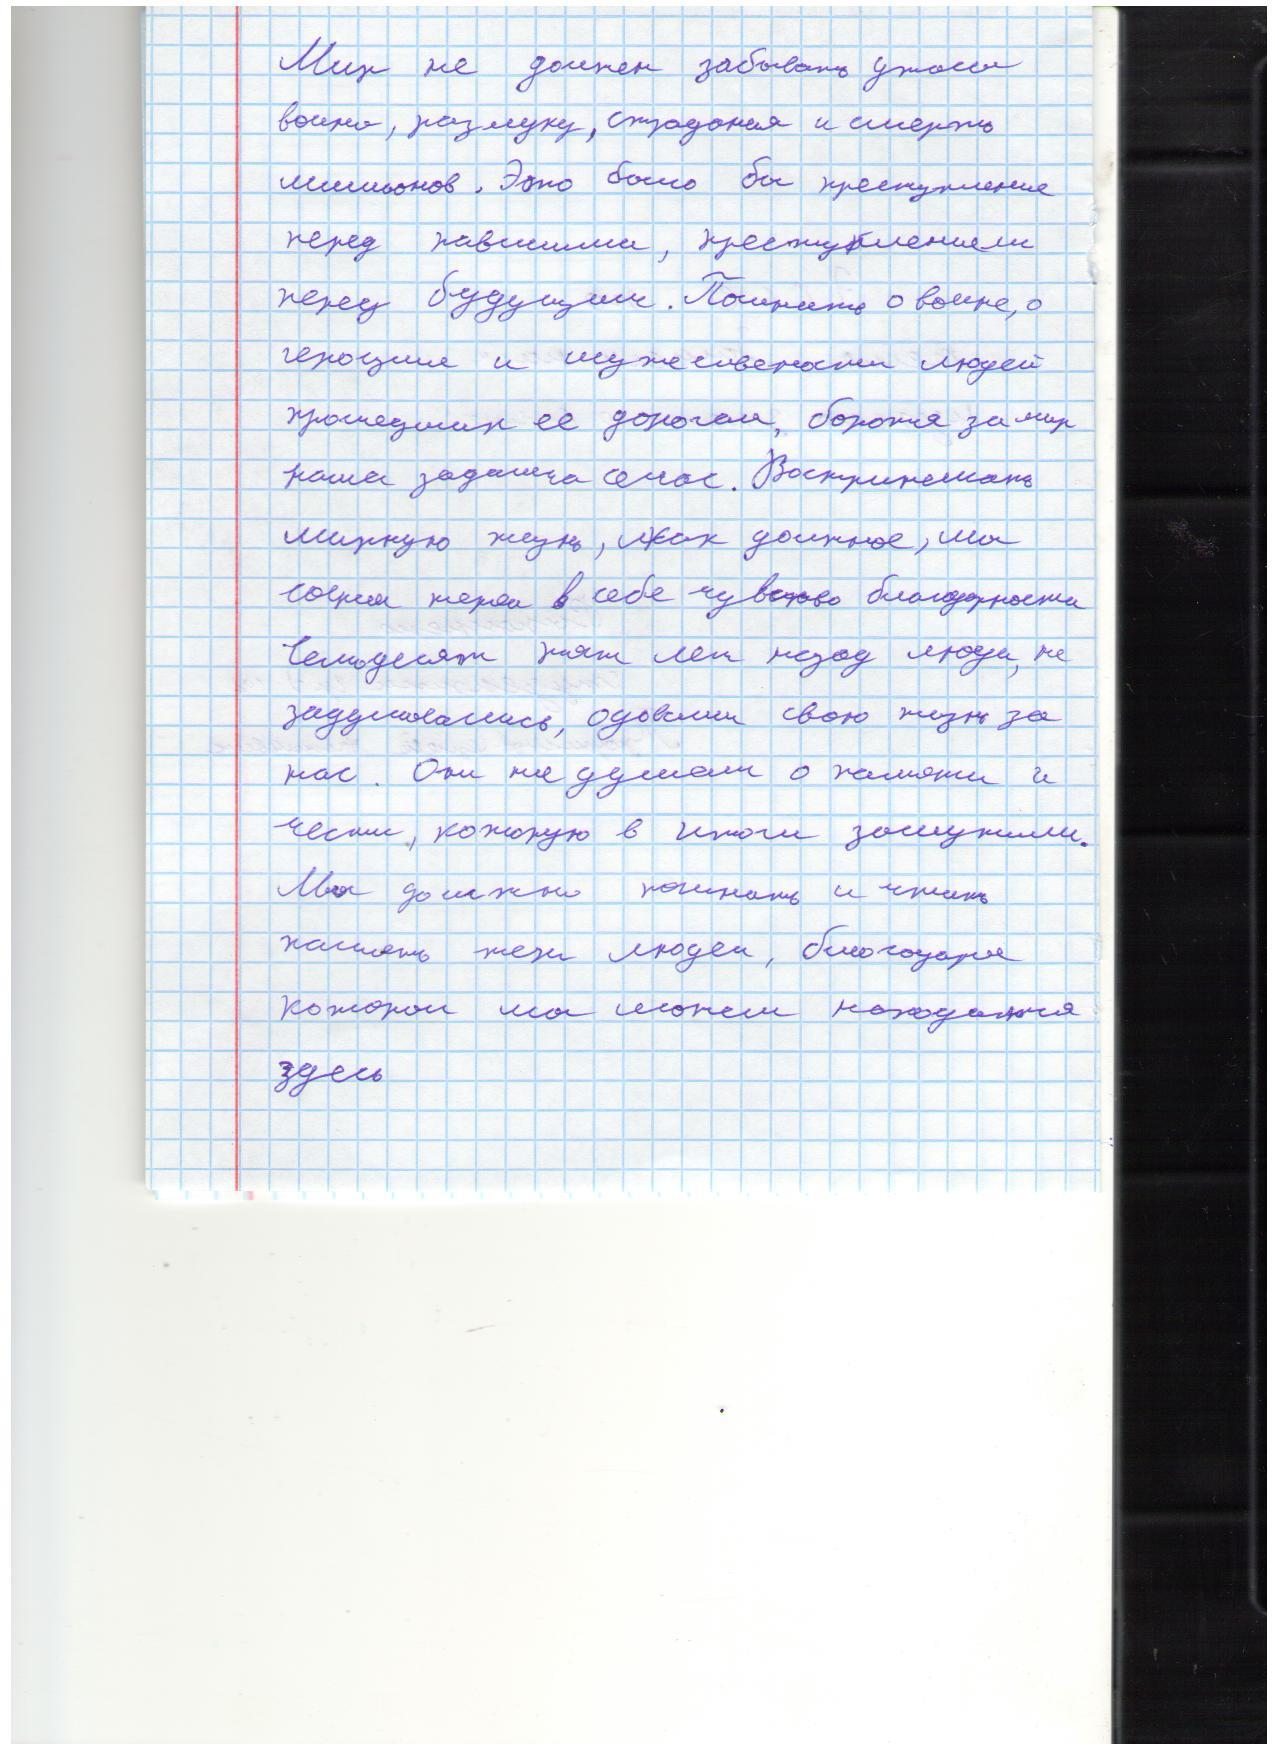 Мир не должен забывать ужасы
войны, разлуку, страдания и смерть
миллионов. Это было бы преступление
перед павшими, преступлением
перед будущим. Помнить о войне, о
героизме и мужественности людей
прошедших ее дорогам, бороться за мир
наша задача сечас. Воспринемать
мирную жизнь, как должное, мы
в себе чувство благодарности
Семьдесят пят лет назад люди, не
задумываясь, одовали свою жизнь за
нас. Они не думали о памяти и
чести, которую в итоги заслужили.
Мы должны помнить и чтить
память тех людей, благодаря
которой мы можем находится
здесь